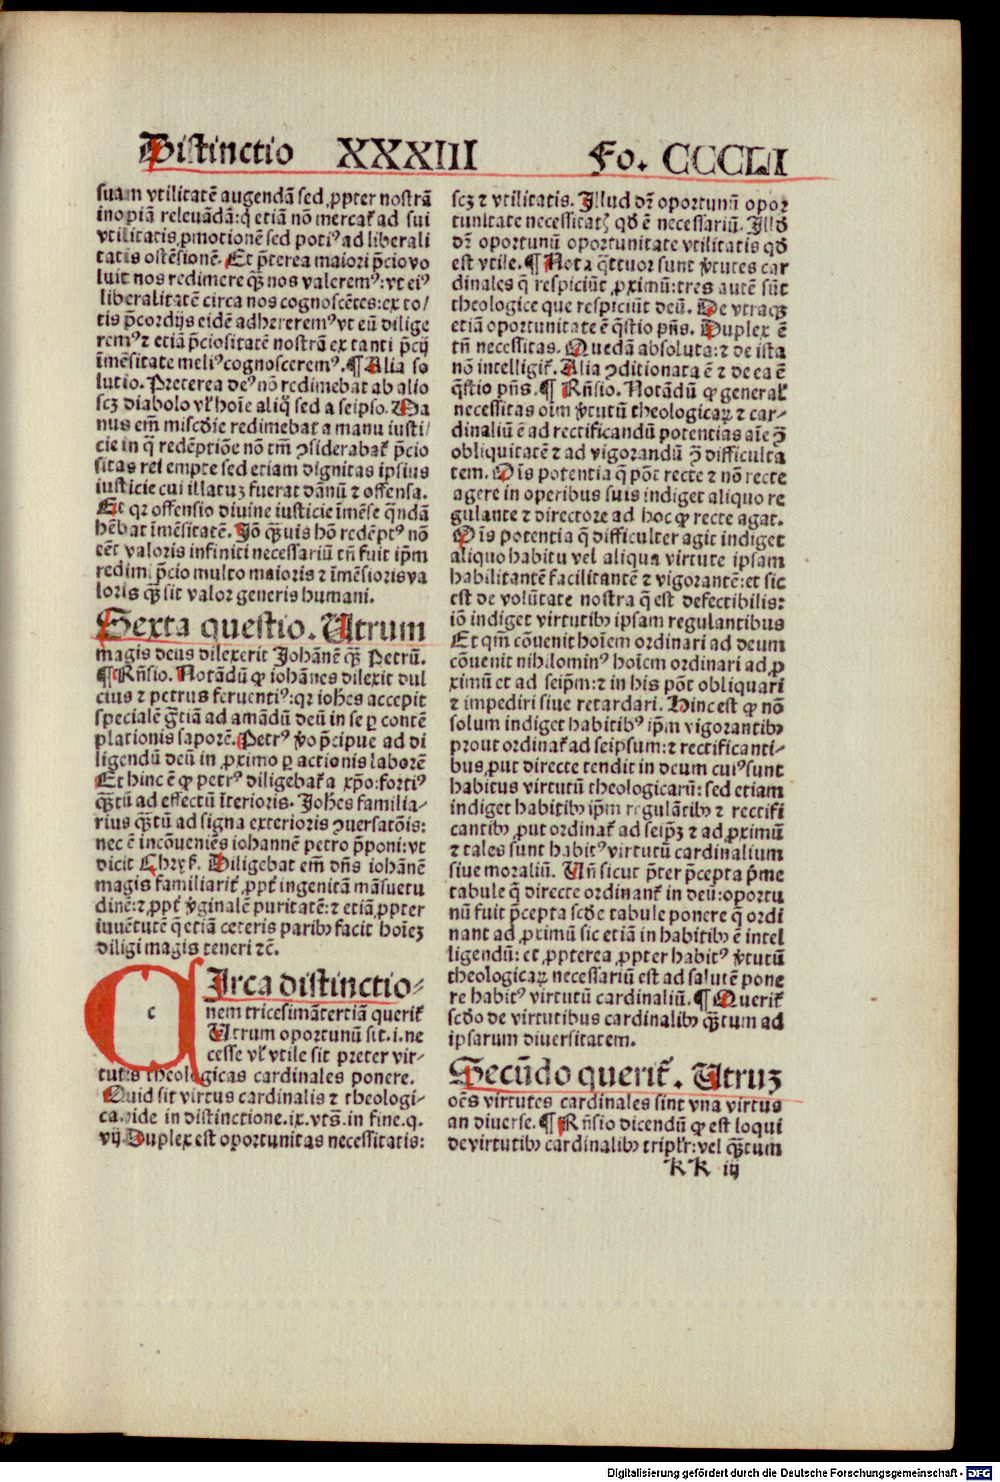 Distinctio XXXIII Fo. CCCLI
suam vtilitatē augendā sed ꝓpter nostrā
inopiā releuādā: q̄ etiā nō mercat᷑ ad sui
vtilitatis ꝓmotionē sed potiꝰ ad liberali
tatis ostēsionē. Et p̄terea maiori p̄cio vo
luit nos redimere qꝫ̄ nos valeremꝰ: vt eiꝰ
liberalitatē circa nos cognoscētes: ex to/
tis p̄cordijs eidē adhereremꝰ vt eū dilige
remꝰ ⁊ etiā p̄ciositatē nostrā ex tanti p̄cij
īmēsitate meliꝰ cognosceremꝰ. ¶ Alia so
lutio. Preterea deꝰ nō redimebat ab alio
scꝫ diabolo vl̓ hoīe aliq̄ sed a seipso. Ma
nus em̄ miscd̓ie redimebat a manu iusti/
cie in q̄ redēptiōe nō tm̄ ꝯsiderabat᷑ p̄cio
sitas rei empte sed etiam dignitas ipsius
iusticie cui illatuꝫ fuerat dānū ⁊ offensa.
Et qꝛ offensio diuine iusticie īmēse q̄ndā
hēbat īmēsitatē. Jō qꝫ̄uis hō redēptꝰ nō
eēt valoris infiniti necessariū tn̄ fuit ip̄m
redimi p̄cio multo maioris ⁊ īmēsioris va
loris qꝫ̄ sit valor generis humani.
Sexta questio. Utrum
magis deus dilexerit Johānē qꝫ̄ Petrū.
¶ Rn̄sio. Notādū ꝙ iohānes dilexit dul
cius ⁊ petrus feruentiꝰ: qꝛ ioh̄es accepit
specialē gr̄tiā ad amādū deū in se ꝑ contē
plationis saporē. Petrꝰ v̓o p̄cipue ad di
ligendū deū in ꝓximo ꝑ actionis laborē
Et hinc ē ꝙ petrꝰ diligebat᷑ a xp̄o: fortiꝰ
qꝫ̄tū ad effectū īterioris. Joh̄es familia⸗
rius qꝫ̄tū ad signa exterioris ꝯuersatōis:
nec ē incōueniēs iohannē petro p̄poni: vt
dicit Chrys̓. Diligebat em̄ dn̄s iohānē
magis familiarit᷑ ꝓpt᷑ ingenitā māsuetu
dinē: ⁊ ꝓpt᷑ v̓ginalē puritatē: ⁊ etiā ꝓpter
iuuētutē q̄ etiā ceteris paribꝰ facit hoīeꝫ
diligi magis teneri ⁊c̄.
c
Circa distinctio⸗
nem tricesimātertiā querit᷑
Utrum oportunū sit .i. ne
cesse vl̓ vtile sit preter vir⸗
tutes theologicas cardinales ponere.
Quid sit virtus cardinalis ⁊ theologi⸗
ca. vide in distinctione .ix. vts̄. in fine. q.
vij Duplex est oportunitas necessitatis:
scꝫ ⁊ vtilitatis. Illud dr̄ oportunū opor
tunitate necessitatꝭ qd̓ ē necessariū. Illd̓
dr̄ oportunū oportunitate vtilitatis qd̓
est vtile. ¶ Nota q̄ttuor sunt v̓tutes car
dinales q̄ respiciūt ꝓximū: tres autē sūt
theologice que respiciūt deū. De vtraqꝫ
etiā oportunitate ē q̄stio pn̄s. Duplex ē
tn̄ necessitas. Quedā absoluta: ⁊ de ista
nō intelligit᷑. Alia ꝯditionata ē ⁊ de ea ē
q̄stio pn̄s. ¶ Rn̄sio. Notādū ꝙ general̓
necessitas oīm v̓tutū theologicaꝝ ⁊ car⸗
dinaliū ē ad rectificandū potentias aīe ꝯ̄
obliquitatē ⁊ ad vigorandū ꝯ̄ difficulta
tem. Oīs potentia q̄ pōt recte ⁊ nō recte
agere in operibus suis indiget aliquo re
gulante ⁊ directore ad hoc ꝙ recte agat.
Oīs potentia q̄ difficulter agit indiget
aliquo habitu vel aliqua virtute ipsam
habilitantē facilitantē ⁊ vigorantē: et sic
est de volūtate nostra q̄ est defectibilis:
iō indiget virtutibꝰ ipsam regulantibus
Et qm̄ cōuenit hoīem ordinari ad deum
cōuenit nihilominꝰ hoīem ordinari ad ꝓ
ximū et ad seip̄m: ⁊ in his pōt obliquari
⁊ impediri siue retardari. Hinc est ꝙ nō
solum indiget habitibꝰ ip̄m vigorantibꝰ
prout ordinat᷑ ad seipsum: ⁊ rectificanti⸗
bus ꝓut directe tendit in deum cuiꝰ sunt
habitus virtutū theologicarū: sed etiam
indiget habitibꝰ ip̄m regulātibꝰ ⁊ rectifi
cantibꝰ ꝓut ordinat᷑ ad seip̄ꝫ ⁊ ad ꝓximū
⁊ tales sunt habitꝰ virtutū cardinalium
siue moraliū. Un̄ sicut p̄ter p̄cepta p̄me
tabule q̄ directe ordinant᷑ in deū: oportu
nū fuit p̄cepta scd̓e tabule ponere q̄ ordi
nant ad ꝓximū sic etiā in habitibꝰ ē intel
ligendū: et ꝓpterea ꝓpter habitꝰ v̓tutū
theologicaꝝ necessariū est ad salutē pone
re habitꝰ virtutū cardinaliū. ¶ Querit᷑
scd̓o de virtutibus cardinalibꝰ qꝫ̄tum ad
ipsarum diuersitatem.
Secūdo querit᷑. Utruꝫ
oēs virtutes cardinales sint vna virtus
an diuerse. ¶ Rn̄sio dicendū ꝙ est loqui
de virtutibꝰ cardinalibꝰ tripl̓r: vel qꝫ̄tum
KK iij
Digitalisierung gefördert durch die Deutsche Forschungsgemeinschaft - DFG